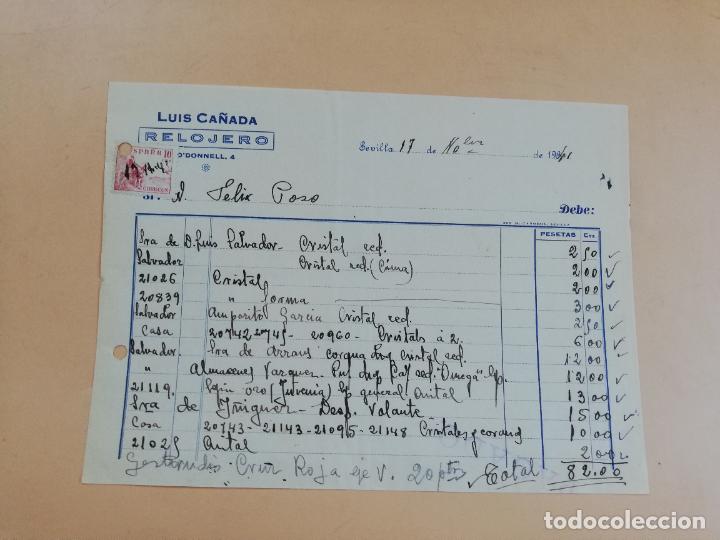 LUIS CAÑADA
RELOJERO
O'DONNELL, 4
ESPAÑA 10
CORREOS
Sevilla 17 de Nobre de 1941
Sr. D. Felix Pozo
Debe:
PESETAS Cts.
Sra de D. Luis Salvador - Cristal red. 2 50
Salvador Cristal red. (Cima) 2 00
21026 Cristal 2 00
20839 " forma 3 00
Salvador Amparito Garcia Cristal red. 2 50
Casa 20742 - 20960 - Cristals á 2. 6 00
Salvador Sra de Arraus cristal red. 12 00
" Almacenes Vazquez. red. "Omega" 12 00
21119 oro (Juvenia) general Cristal 13 00
Sra de Iñiguez - Desp. Volante 15 00
Casa 20743 - 21143 - 21095 - 21148 Cristales y corona 10 00
21025 Cristal 2 00
Gertrudis Cruz Roja eje V. 20 pts Total 82.00
todocoleccion
todocoleccion.net